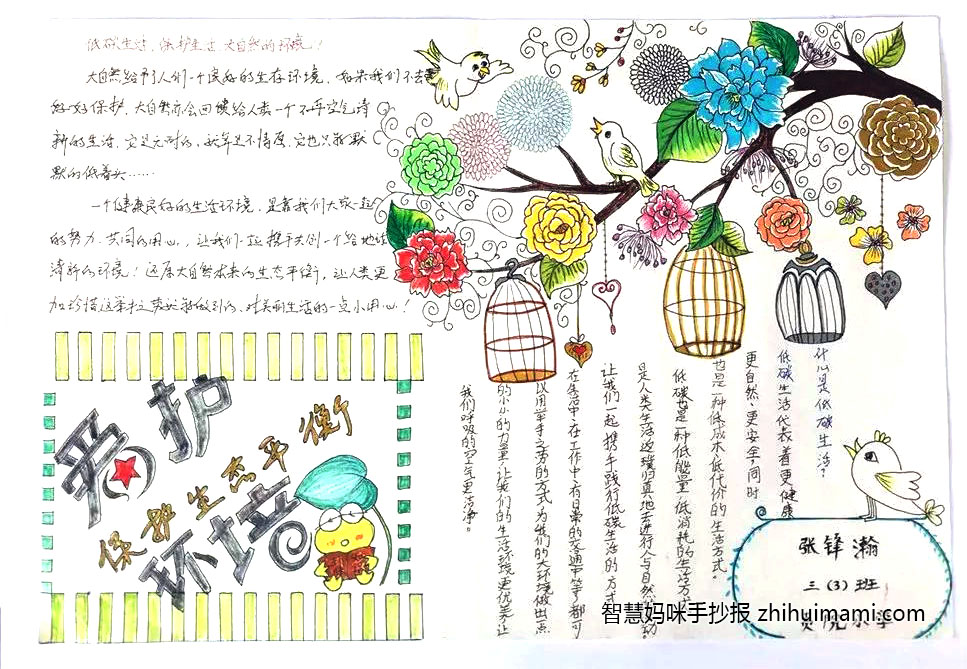 低碳生活，保护生态，大自然的环境！
大自然给予人们一个良好的生存环境，如果我们不去
好好保护，大自然亦会回馈给人类一个不再空气清
新的生活，它是无声的，
默的低着头……
一个健康良好的生活环境，是靠我们大家一起
的努力，共同的用心，让我们一起携手共创一个给地球
清新的环境！还原大自然本来的生态平衡，让人类更
加珍惜这举手之劳，对美丽生活的一点小用心！
爱护
环境
保护生态平衡
什么是低碳生活？
低碳生活代表着更健康
更自然，更安全，同时
也是一种低成本、低代价的生活方式。
低碳也是一种低能量、低消耗的生活方式
是人类生活返璞归真地去进行人与自然的
让我们一起携手践行低碳生活的方式
在生活中、在工作中、有日常的交通中等，都可
以用举手之劳的方式，为我们的大环境做出一点
的小小的力量，让我们的生活环境更优美，让
我们呼吸的空气更洁净。
张锋瀚
三（3）班
小学
智慧妈咪手抄报 zhihuimami.com